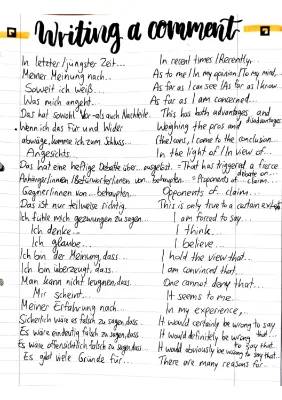 Writing a comment
In letzter/jüngster Zeit... In recent times/Recently,
Meiner Meinung nach... As to me/In my opinion/To my mind,...
Soweit ich weiß... As far as I can see/As far as I know...
Was mich angeht... As far as I am concerned...
Das hat sowohl Vor- als auch Nachteile. This has both advantages and disadvantages
Wenn ich das Für und Wider Weighing the pros and
abwäge, komme ich zum Schluss... (the)cons, I come to the conclusion...
Angesichts... In the light of/In view of...
Das hat eine heftige Debatte über... ausgelöst. = That has triggered a fierce debate on...
Anhänger/innen/Befürworter/innen von... behaupten... = Proponents of... claim...
Gegner/innen von... behaupten... Opponents of... claim...
Das ist nur teilweise richtig. This is only true to a certain extent
Ich fühle mich gezwungen zu sagen... I am forced to say...
Ich denke... I think...
Ich glaube... I believe...
Ich bin der Meinung, dass... I hold the view that...
Ich bin überzeugt, dass... I am convinced that...
Man kann nicht leugnen, dass... One cannot deny that...
Mir scheint... It seems to me...
Meiner Erfahrung nach... In my experience,...
Sicherlich wäre es falsch zu sagen, dass... It would certainly be wrong to say that...
Es wäre eindeutig falsch zu sagen, dass... It would definitely be wrong to say that...
Es wäre offensichtlich falsch zu sagen, dass... It would obviously be wrong to say that...
Es gibt viele Gründe für... There are many reasons for...